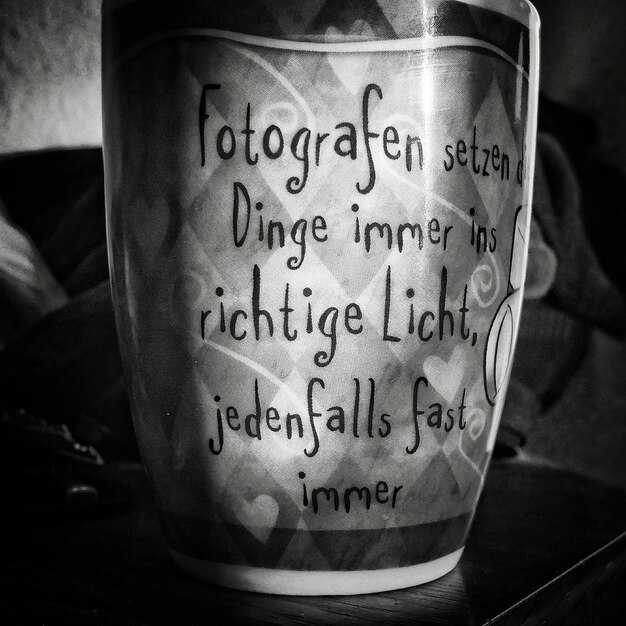 Fotografen setzen
Dinge immer ins
richtige Licht,
jedenfalls fast
immer